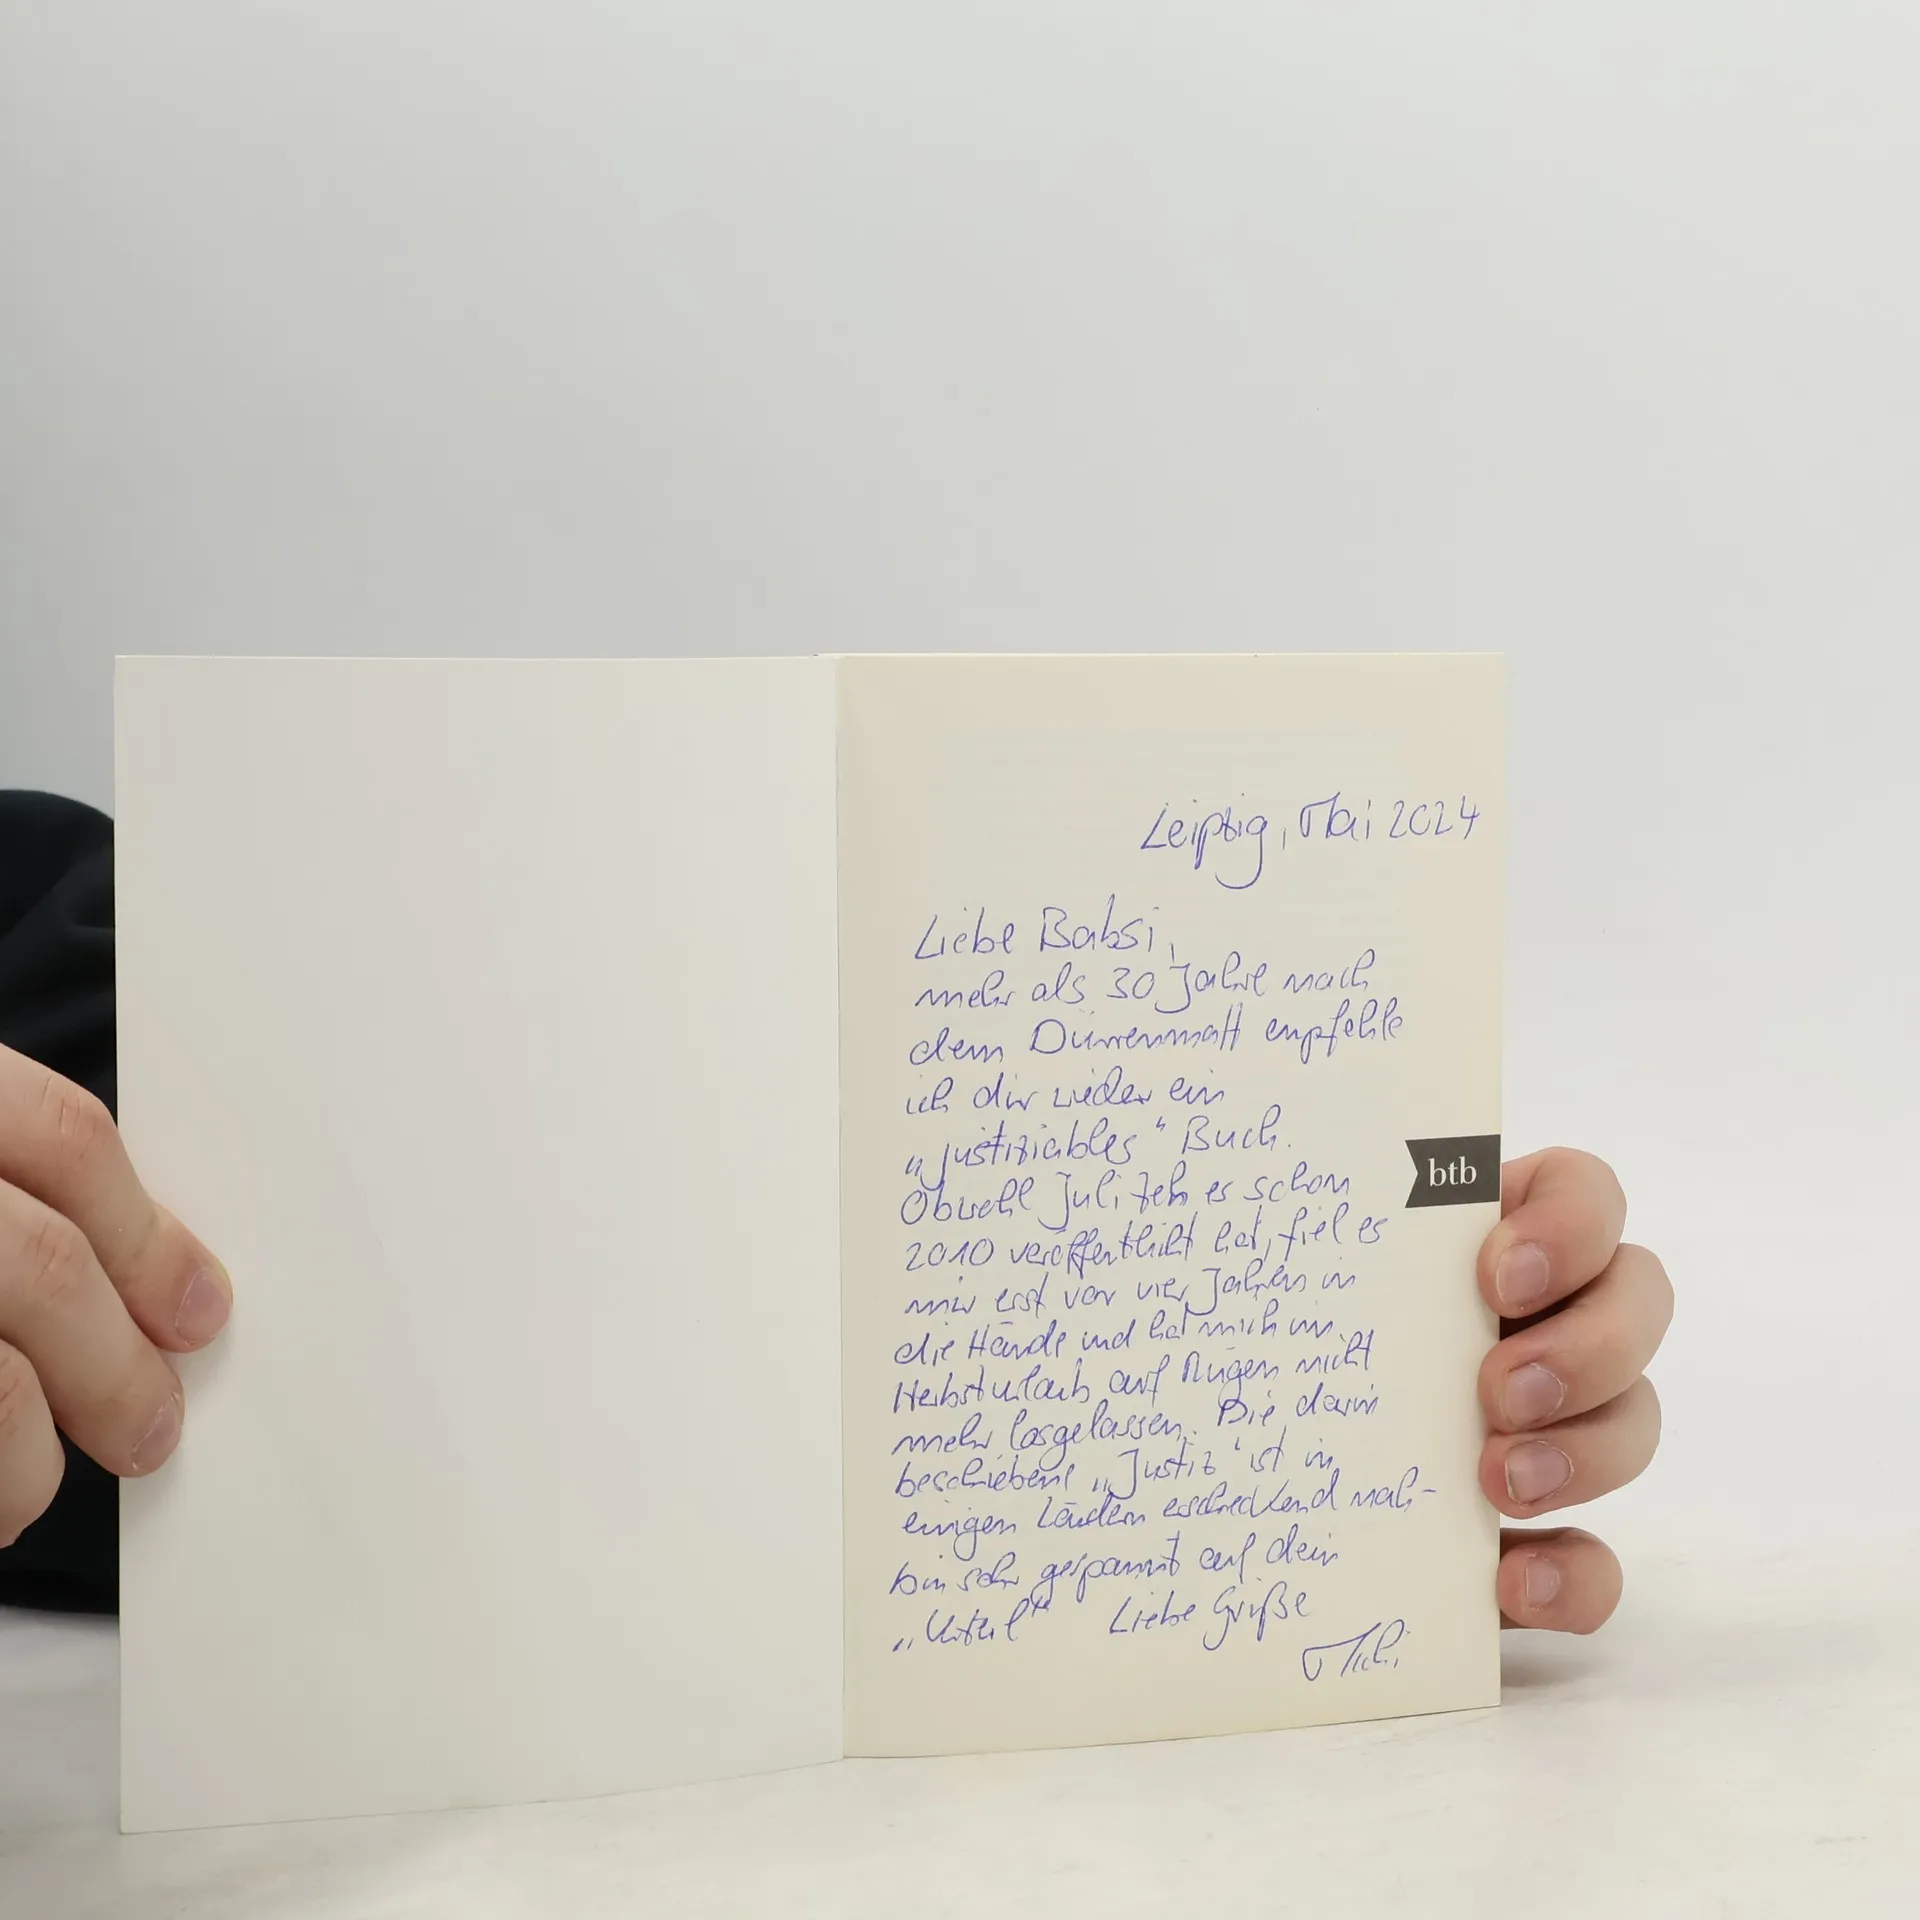 Leipzig, Mai 2024
Liebe Babsi,
mehr als 30 Jahre nach
dem Dürrenmatt empfehle
ich dir wieder ein
„justiziables“ Buch.
Obwohl Juli Zeh es schon
2010 veröffentlicht hat, fiel es
mir erst vor vier Jahren in
die Hände und hat mich im
Herbsturlaub auf Rügen nicht
mehr losgelassen. Die darin
beschriebene „Justiz“ ist in
einigen Ländern erschreckend nah -
bin sehr gespannt auf dein
„Urteil“ Liebe Grüße
Michi
btb